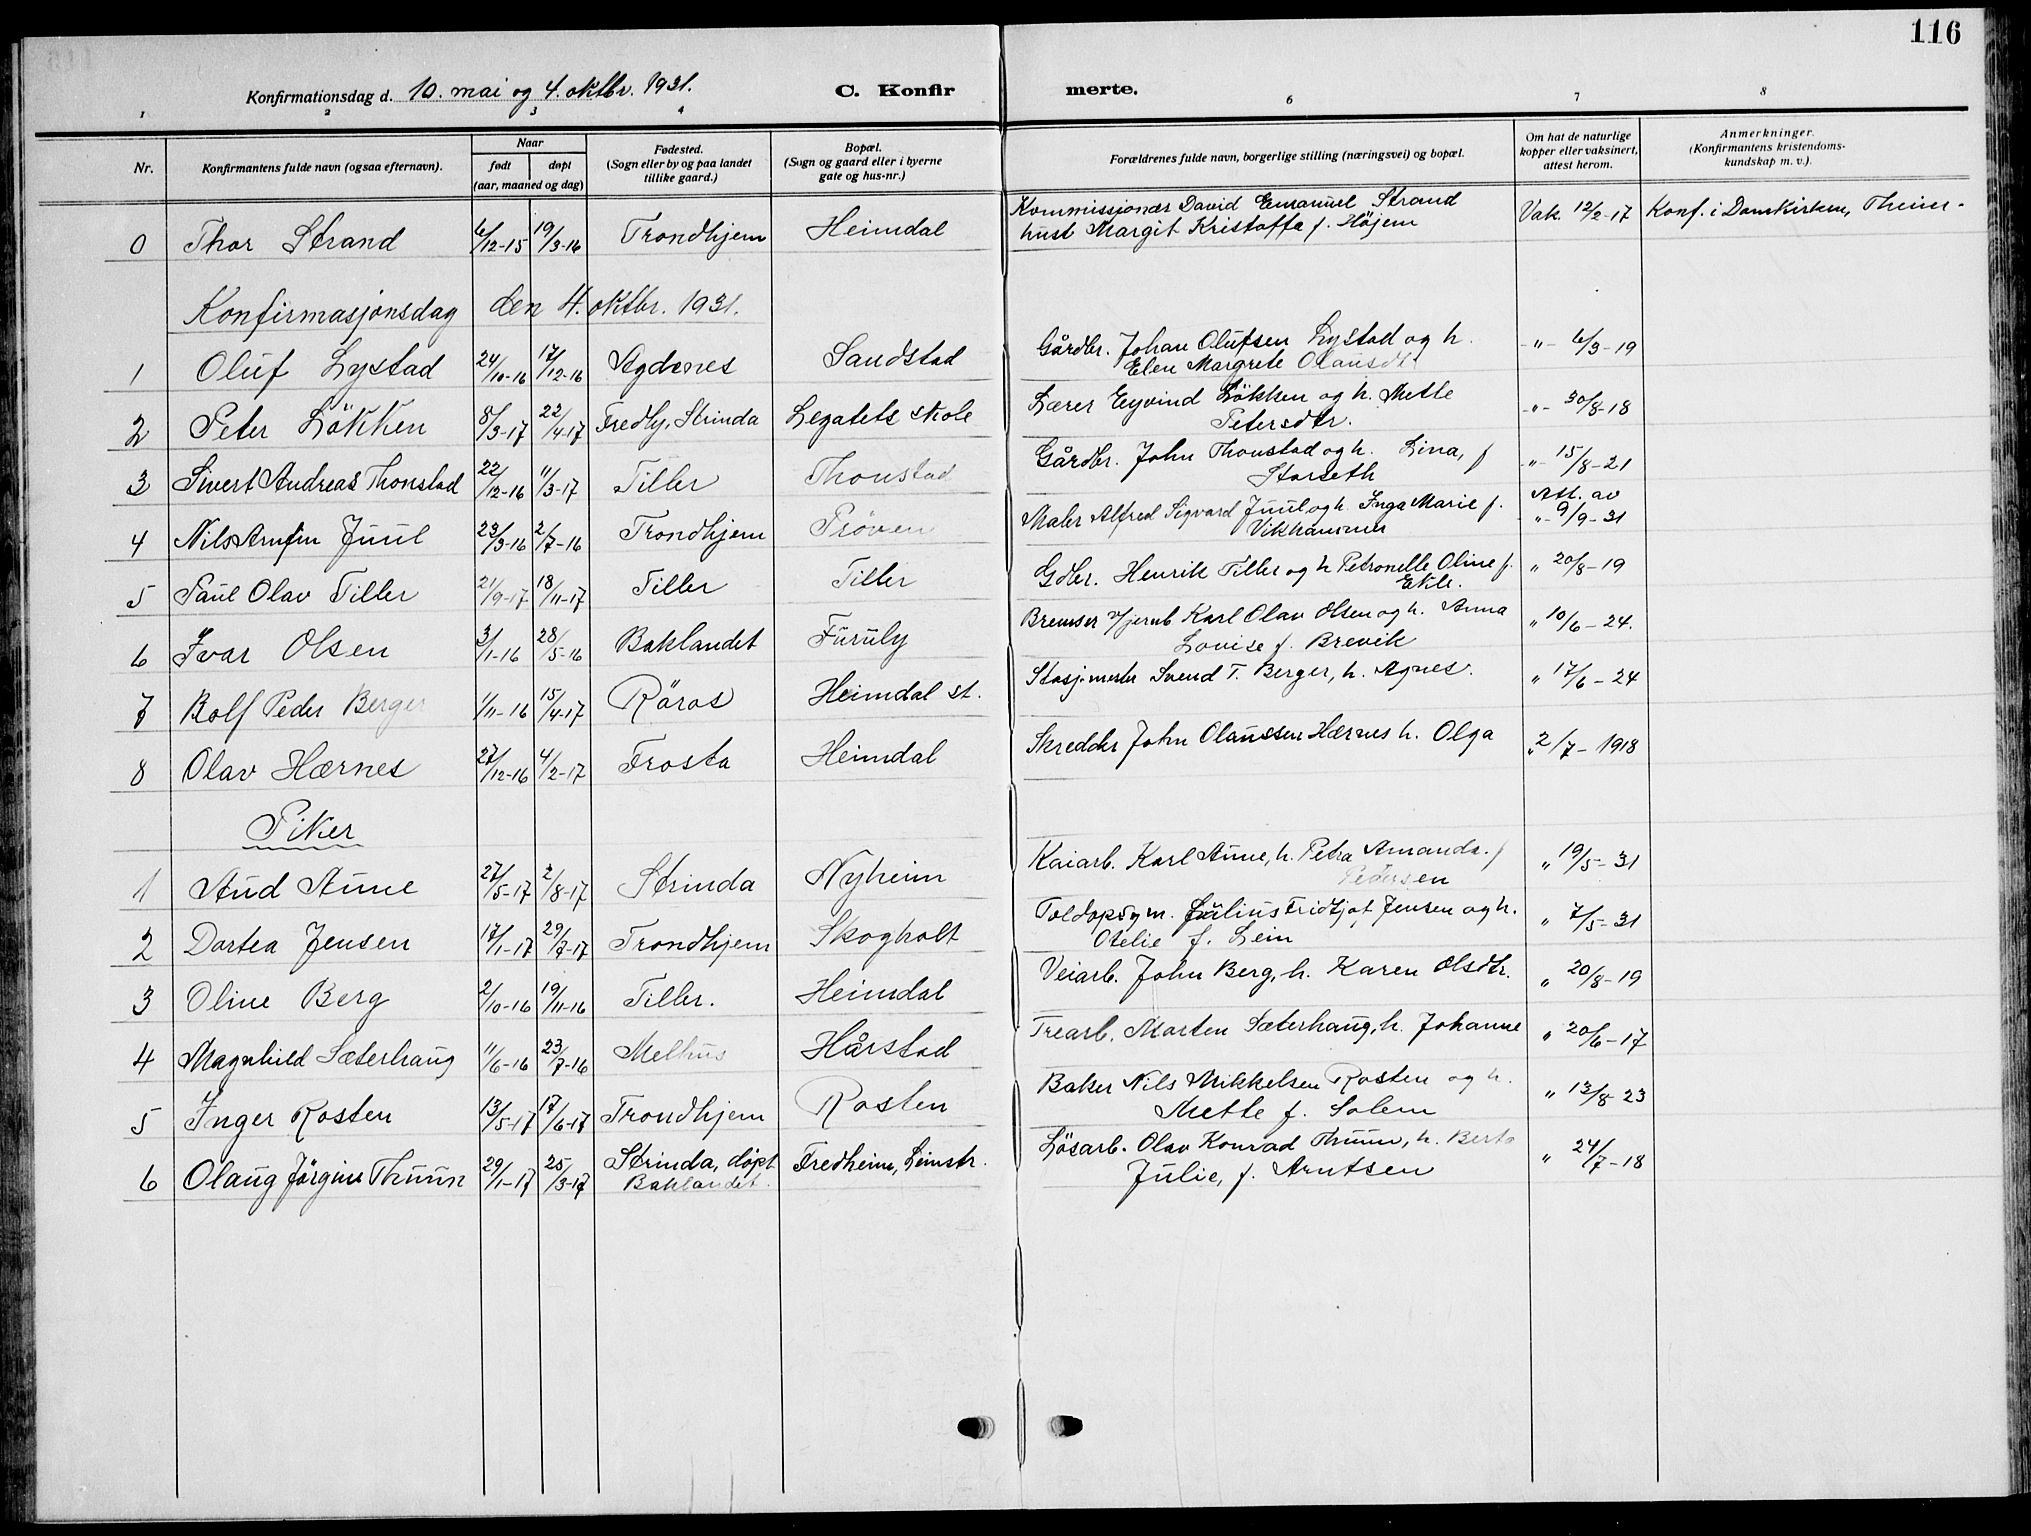 116
Konfirmationsdag d. 10. mai og 4. oktbr. 1931.
C. Konfir merte.
1 2 3 4 6 7 8
Nr. Konfirmantens fulde navn (ogsaa efternavn). Naar født døpt (aar, maaned og dag) Fødested. (Sogn eller by og paa landet tillike gaard.) Bopæl. (Sogn og gaard eller i byerne gate og hus-nr.) Forældrenes fulde navn, borgerlige stilling (næringsvei) og bopæl. Om hat de naturlige kopper eller vaksinert, attest herom. Anmerkninger. (Konfirmantens kristendomskundskap m. v.).
0 Thor Strand 6/12-15 19/3-16 Trondhjem Heimdal Kommissionær David Emanuel Strand Vak. 12/2-17 Konf. i Domkirken,
hust Margit Kristoffa f. Højem
Konfirmasjonsdag den 4. oktbr. 1931.
1 Oluf Lystad 24/10-16 17/12-16 Agdenes Sandstad Gårdbr. Johan Olufsen Lystad og h. -"- 6/3-19
Elen Margrete Olausdtr
2 Peter Lökken 8/3-17 22/4-17 Fredly, Strinda Legatets skole Lærer Eyvind Lökken og h. Mette -"- 30/8-18
Petersdtr.
3 Sivert Andreas Thonstad 22/12-16 11/3-17 Tiller Thonstad Gårdbr. John Thonstad og h. Lina, f -"- 15/8-21
Storseth
4 Nils Arnfin Juul 23/3-16 2/7-16 Trondhjem Prøven Maler Alfred Sigvard Juul og h. Inga Marie f. Att. av
Vikhammer -"- 9/9-31
5 Paul Olav Tiller 21/9-17 18/11-17 Tiller Tiller Gdbr. Henrik Tiller og h Petronelle Oline f. " 20/8-19
Ekle.
6 Ivar Olsen 3/1-16 28/5-16 Baklandet Furuly Bremser v/jernb Karl Olav Olsen og h. Anna " 10/6-24.
Lovise f. Brevik
7 Rolf Peder Berger 1/11-16 15/4-17 Röros Heimdal st. Stasj.mester Svend T. Berger, h. Agnes. " 17/6-24
8 Olav Hærnes 27/12-16 4/2-17 Frosta Heimdal Skredder John Olaussen Hærnes h. Olga " 2/7-1918
Piker
1 Aud Aune 27/5-17 2/8-17 Strinda Nyheim Kaiarb. Karl Aune, h. Petra Amanda. f " 19/5-31
Pedersen
2 Dortea Jensen 17/1-17 29/7-17 Trondhjem Skogholt Toldopsym. Julius Fridtjof Jensen og h. " 7/5-31
Otelie f. Lein
3 Oline Berg 2/10-16 19/11-16 Tiller. Heimdal Veiarb. John Berg, h. Karen Olsdtr. " 20/8-19
4 Magnhild Sæterhaug 11/6-16 23/7-16 Melhus Hårstad Trearb. Morten Sæterhaug, h. Johanne " 20/6-17
5 Inger Rosten 13/5-17 17/6-17 Trondhjem Rosten Baker Nils Mikkelsen Rosten og h. " 13/8 23
Mette f. Solem
6 Olaug Jörgine Thuun 29/1-17 25/3-17 Strinda, døpt Fredheim, Leinstr. Lösarb. Olav Konrad Thuun, h. Berta " 24/7-18
Baklandet. Julie, f. Arntsen